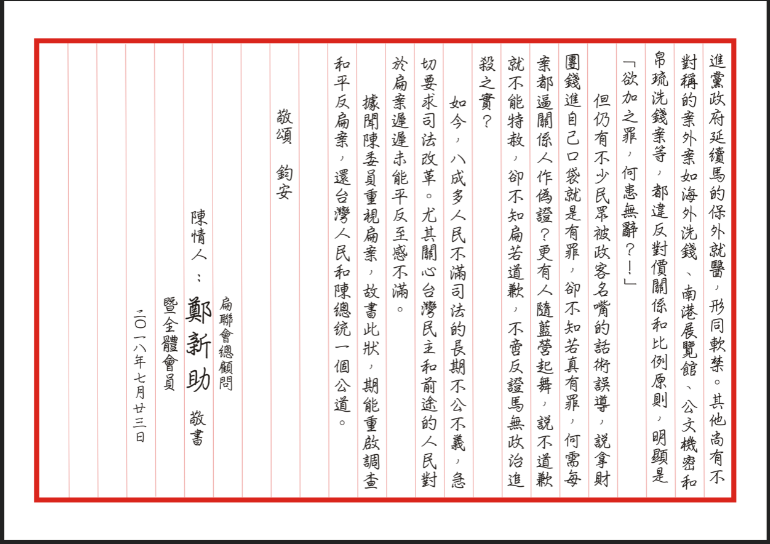 進黨政府延續馬的保外就醫，形同軟禁。其他尚有不
對稱的案外案如海外洗錢、南港展覽館、公文機密和
帛琉洗錢案等，都違反對價關係和比例原則，明顯是
「欲加之罪，何患無辭？！」
但仍有不少民眾被政客名嘴的話術誤導，說拿財
團錢進自己口袋就是有罪，卻不知若真有罪，何需每
案都逼關係人作偽證？更有人隨藍營起舞，說不道歉
就不能特赦，卻不知扁若道歉，不啻反證馬無政治追
殺之實？
如今，八成多人民不滿司法的長期不公不義，急
切要求司法改革。尤其關心台灣民主和前途的人民對
於扁案遲遲未能平反至感不滿。
據聞陳委員重視扁案，故書此狀，期能重啟調查
和平反扁案，還台灣人民和陳總統一個公道。
敬頌　鈞安
扁聯會總顧問
陳情人：鄭新助　敬書
暨全體會員
二〇一八年七月廿三日